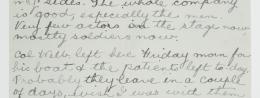 sides. The whole company
is good, especially the men.
Very few actors on the stage now,
mostly soldiers now.
Col Webb left here Friday morn for
his boat & the patients left to-day.
Probably they leave in a couple
of days. Wish I was with them